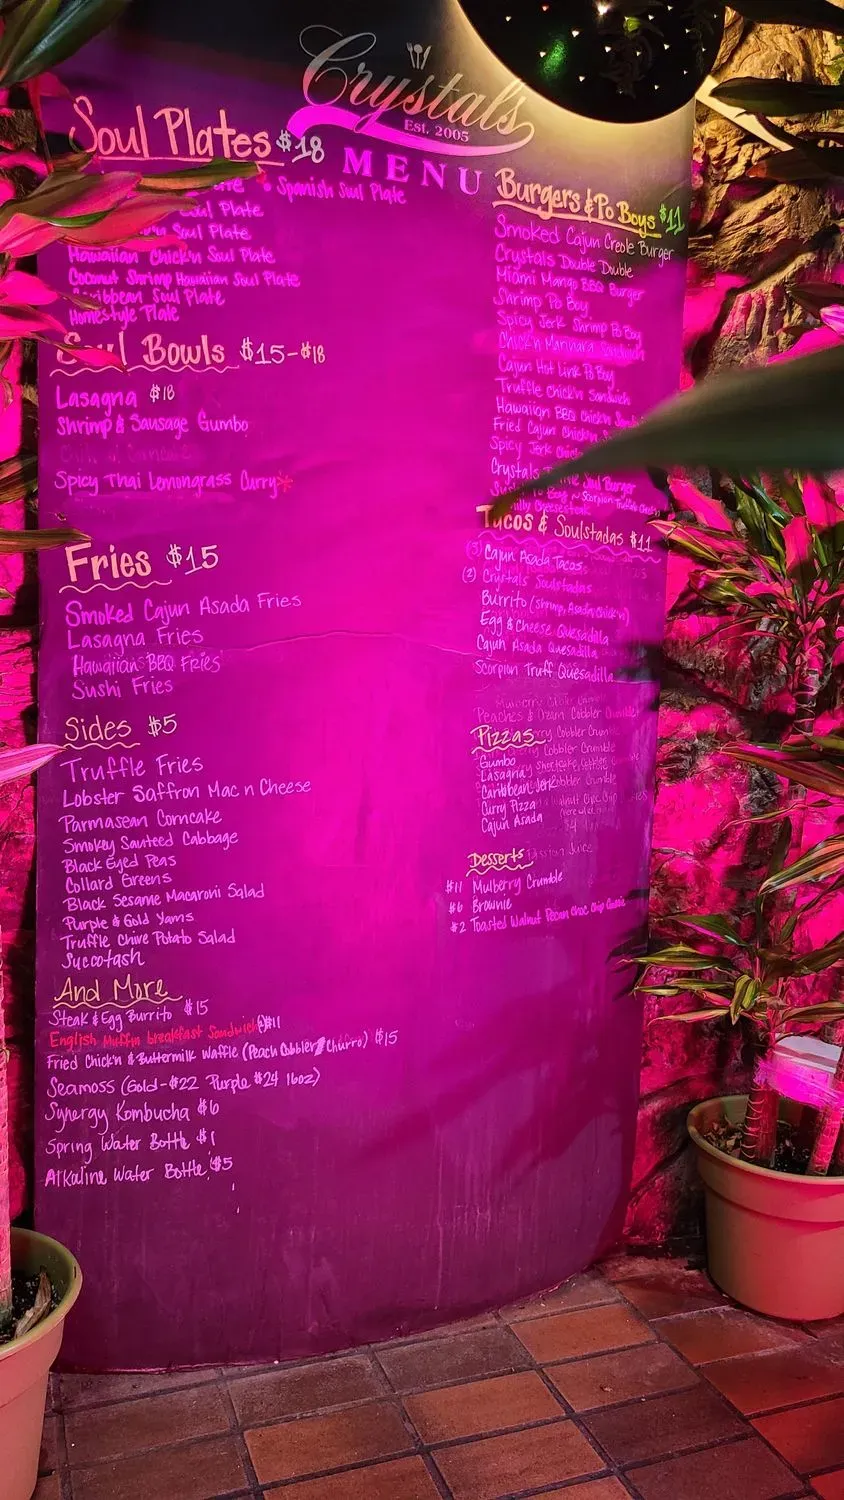 Crystals
Est. 2005
MENU
Soul Plates $18
Spanish Soul Plate
Soul Plate
Soul Plate
Hawaiian Chick'n Soul Plate
Coconut Shrimp Hawaiian Soul Plate
Caribbean Soul Plate
Homestyle Plate
Soul Bowls $15-$18
Lasagna $18
Shrimp & Sausage Gumbo
Spicy Thai Lemongrass Curry*
Fries $15
Smoked Cajun Asada Fries
Lasagna Fries
Hawaiian BBQ Fries
Sushi Fries
Sides $5
Truffle Fries
Lobster Saffron Mac n Cheese
Parmasean Corncake
Smokey Sauteed Cabbage
Black Eyed Peas
Collard Greens
Black Sesame Macaroni Salad
Purple & Gold Yams
Truffle Chive Potato Salad
Succotash
And More
Steak & Egg Burrito $15
English Muffin breakfast Sandwich $11
Fried Chick'n & Buttermilk Waffle (Peach Cobbler/Churro) $15
Seamoss (Gold-$22 Purple $24 16oz)
Synergy Kombucha $6
Spring Water Bottle $1
Alkaline Water Bottle $5
Burgers & Po Boys $11
Smoked Cajun Creole Burger
Crystals Double Double
Miami Mango BBQ Burger
Shrimp Po Boy
Spicy Jerk Shrimp Po Boy
Chick'n Marinara Sandwich
Cajun Hot Link Po Boy
Truffle Chick'n Sandwich
Hawaiian BBQ Chick'n
Fried Cajun Chick'n
Spicy Jerk
Crystals Soul Burger
Po Boy ~ Scorpion Truffle
Cheesesteak
Tacos & Soulstadas $11
(3) Cajun Asada Tacos
(2) Crystals Soulstadas
Burrito (Shrimp, Asada, Chick'n)
Egg & Cheese Quesadilla
Cajun Asada Quesadilla
Scorpion Truff Quesadilla
Peaches & Cream Cobbler Crumble
Pizzas
Gumbo
Lasagna
Caribbean Jerk
Curry Pizza
Cajun Asada
Desserts
$11 Mulberry Crumble
$6 Brownie
$2 Toasted Walnut Pecan Choc Chip Cookie